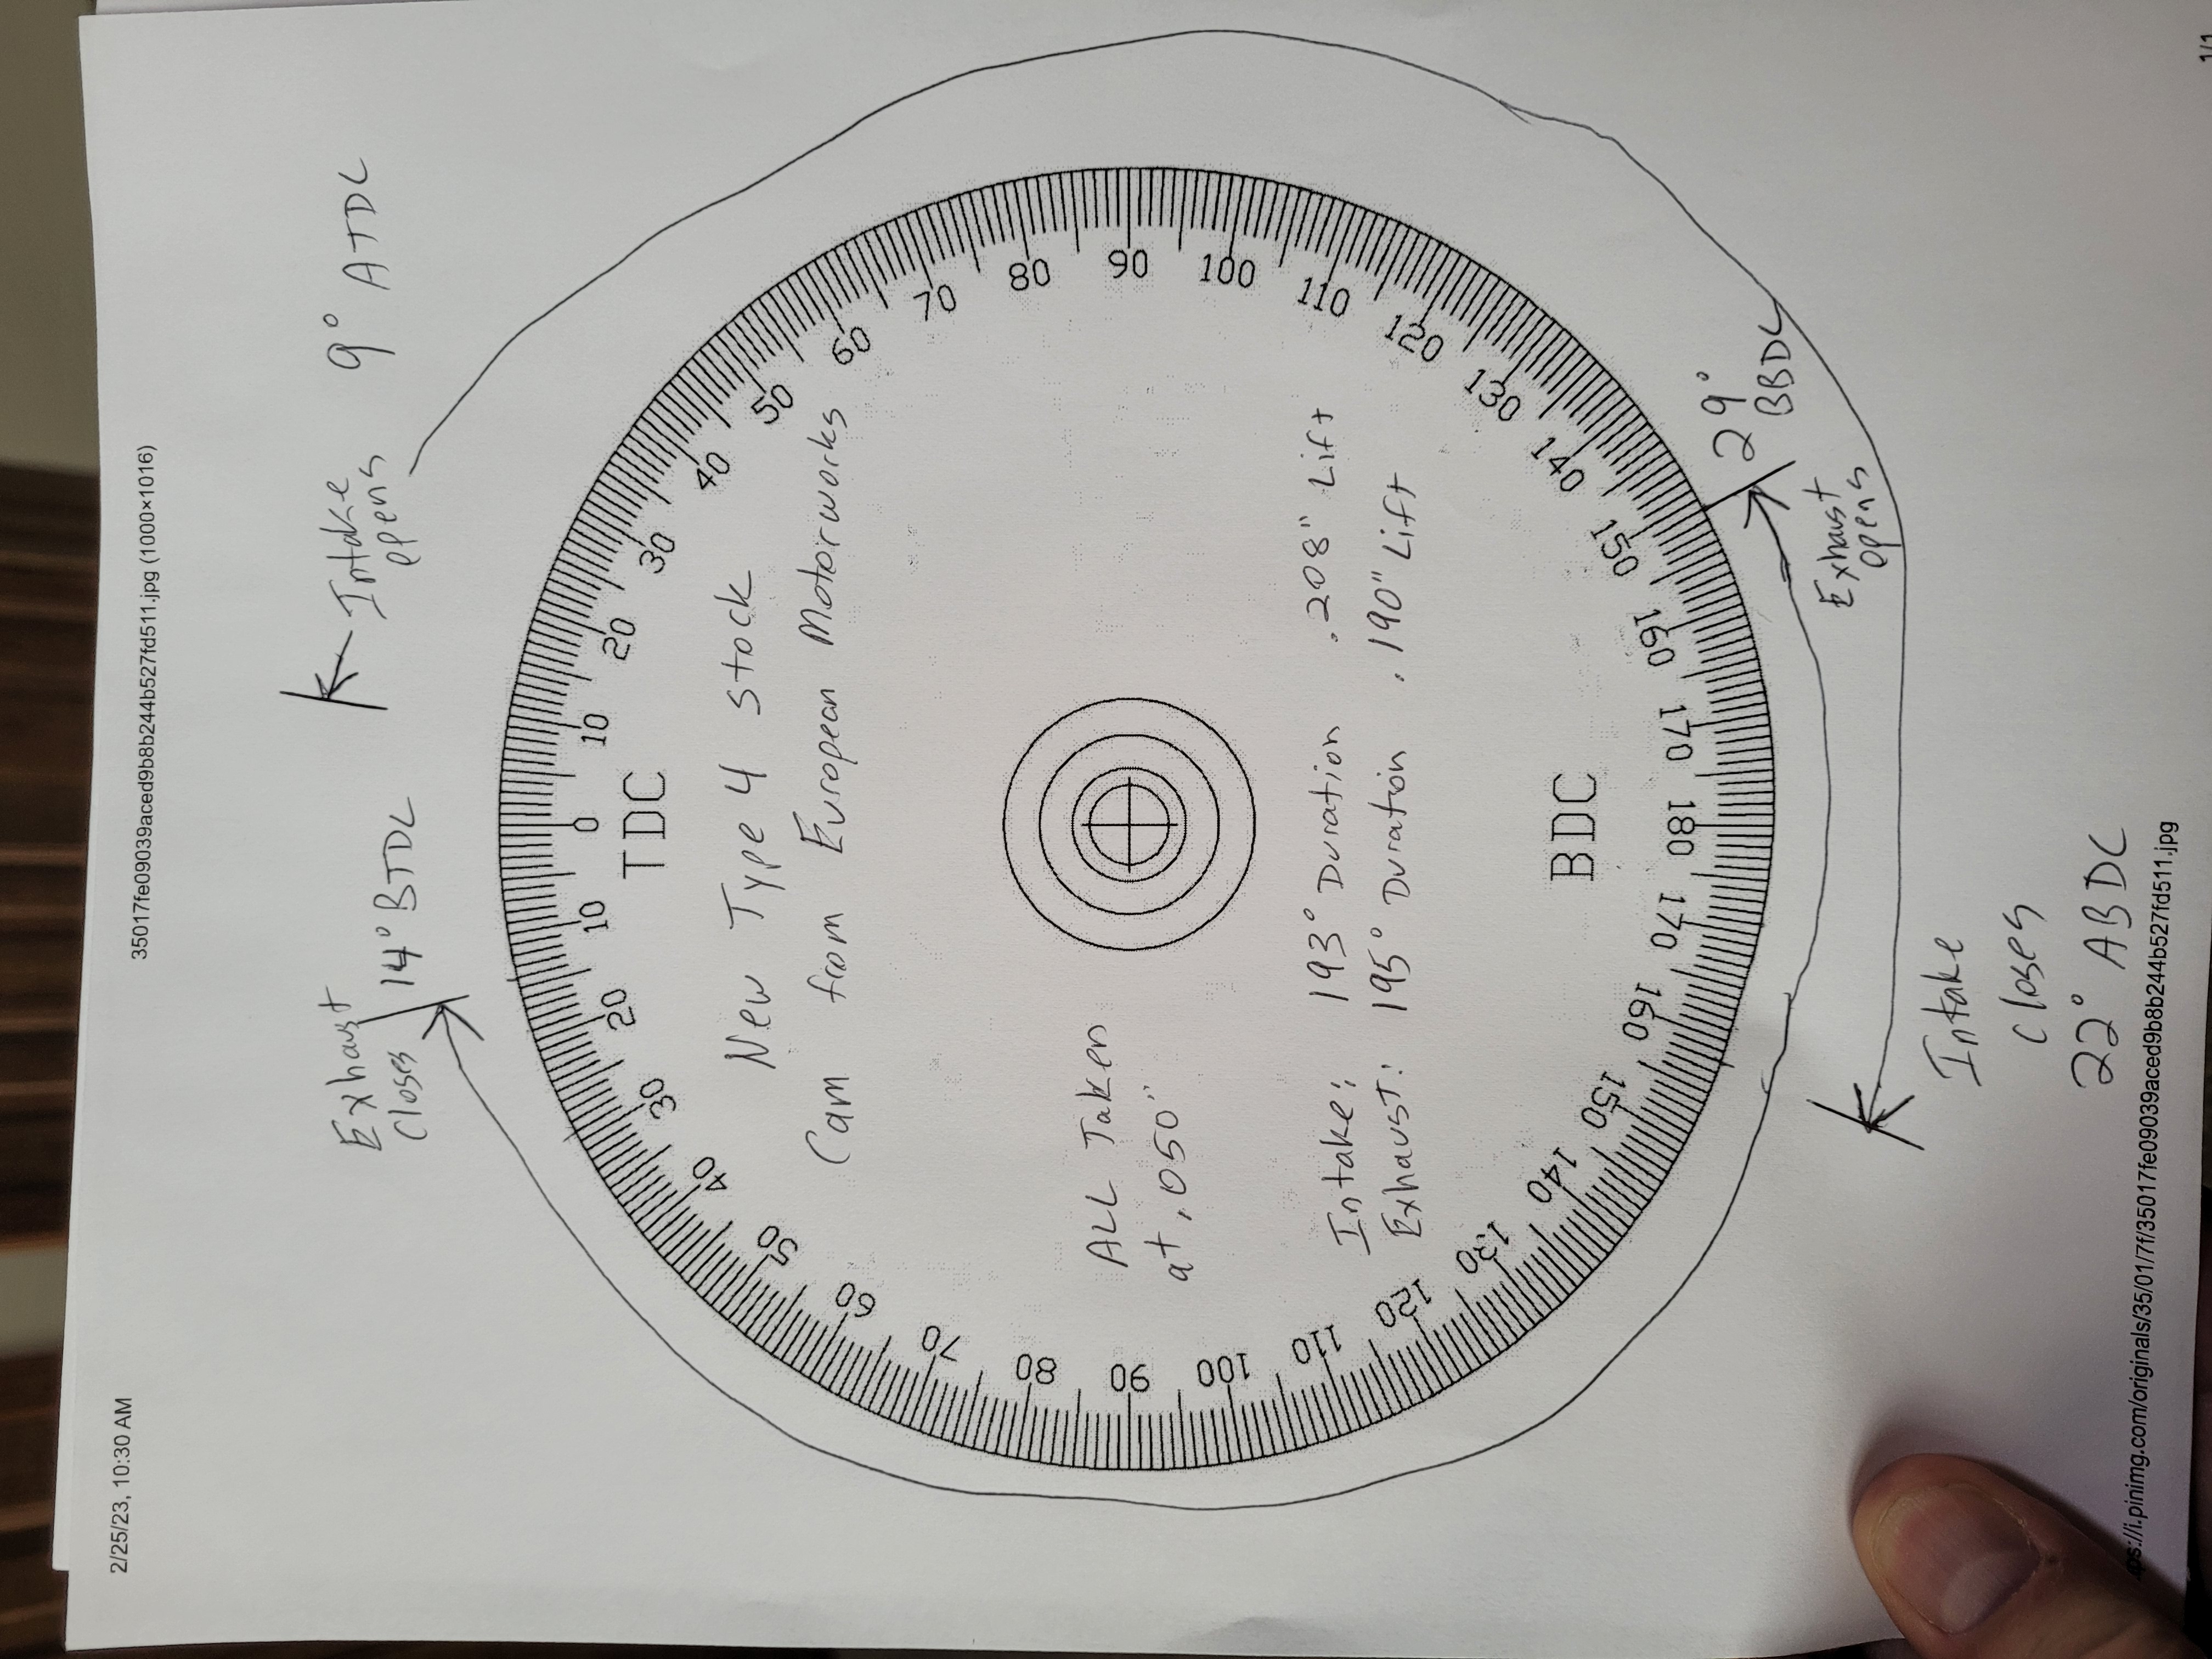 2/25/23, 10:30 AM
35017fe09039aced9b8b244b527fd511.jpg (1000×1016)
Exhaust
closes
14° BTDC
Intake
opens
9° ATDC
0
10
20
30
40
50
60
70
80
90
100
110
120
130
140
150
160
170
180
170
160
150
140
130
120
110
100
90
80
70
60
50
40
30
20
10
TDC
New Type 4 stock
Cam from European Motorworks
ALL Taken
at .050"
Intake: 193° Duration .208" Lift
Exhaust: 195° Duration .190" Lift
BDC
29°
BBDC
Exhaust
opens
Intake
closes
22° ABDC
ps://i.pinimg.com/originals/35/01/7f/35017fe09039aced9b8b244b527fd511.jpg
1/1